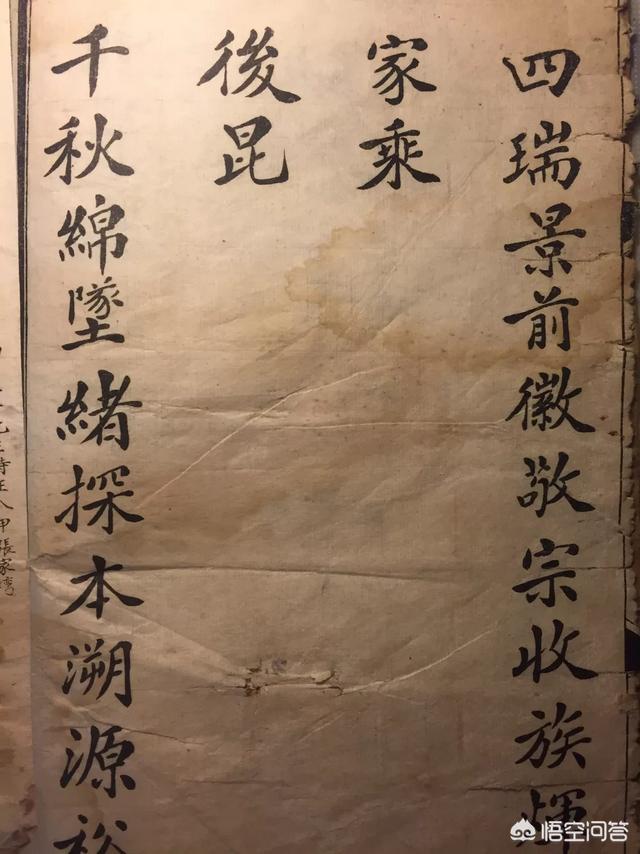 四瑞景前徽敬宗收族煇
家乘
後昆
千秋綿墜緒探本溯源裕
八甲張家灣
悟空问答